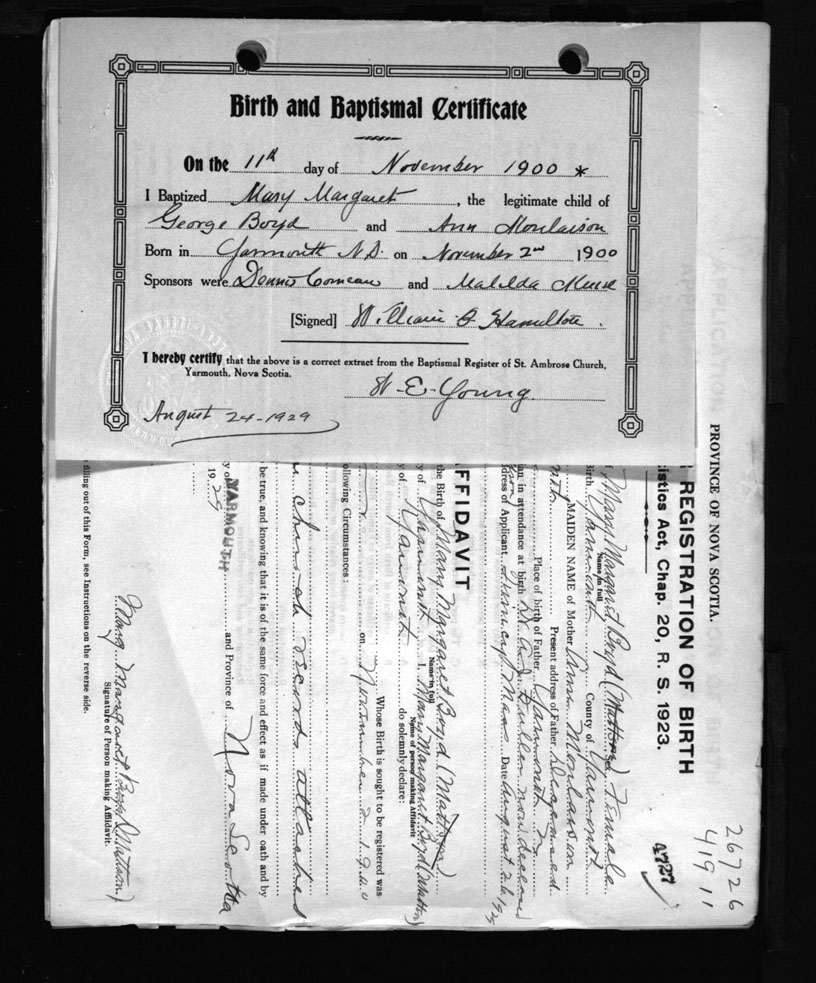 Birth and Baptismal Certificate
On the 11th day of November 1900 *
I Baptized Mary Margaret, the legitimate child of
George Boyd and Ann Moulaison
Born in Yarmouth N.S. on November 2nd 1900
Sponsors were Comeau and Matilda Meuse
[Signed] William Hamilton.
I hereby certify that the above is a correct extract from the Baptismal Register of St. Ambrose Church,
Yarmouth, Nova Scotia.
W. E. Young
August 24-1929
PROVINCE OF NOVA SCOTIA.
REGISTRATION OF BIRTH
istics Act, Chap. 20, R. S. 1923.
26726
41911
4727
Mary Margaret Boyd (Mattson) Female
Name in full
Birth Yarmouth County of Yarmouth
MAIDEN NAME of Mother Ann Moulaison
Present address of Father Deceased
Place of birth of Father Yarmouth
an in attendance at birth now deceased
dress of Applicant Mass Date August 26, 1929
FFIDAVIT
the Birth of Mary Margaret Boyd (Mattson)
Name in full
I, Mary Margaret Boyd (Mattson)
Name of person making Affidavit
y of Yarmouth do solemnly declare:
Whose Birth is sought to be registered was
on November 2 1900
ollowing Circumstances:
church records attached
be true, and knowing that it is of the same force and effect as if made under oath and by
y of YARMOUTH and Province of Nova Scotia
1929
Mary Margaret Boyd (Mattson)
Signature of Person making Affidavit.
filling out of this Form, see Instructions on the reverse side.